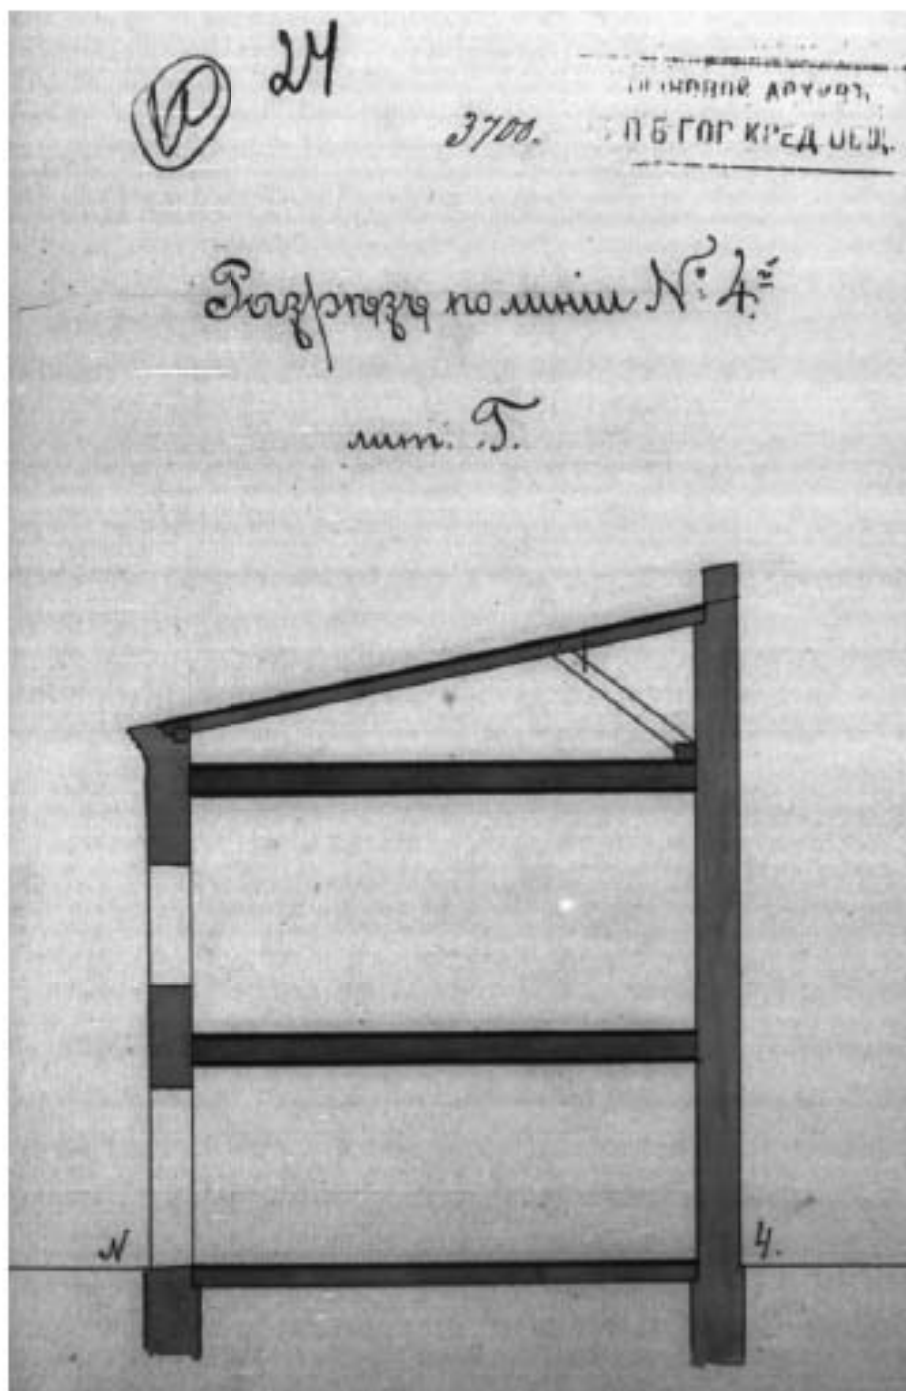 24
3700.
АРХИВЪ
СПБ ГОР КРЕД ОБЩ.
Разрѣзъ по линіи №: 4.й
лит. Г.
N
4.